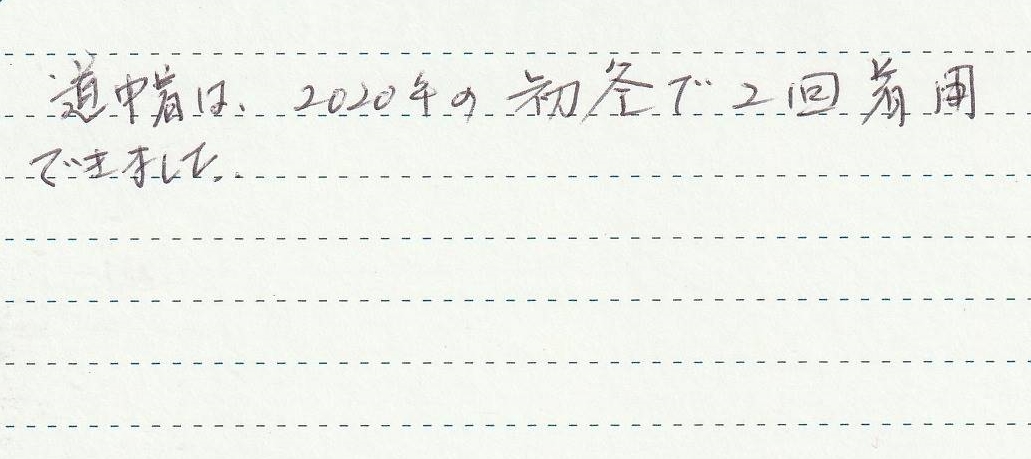 道中着は、2020年の初冬で2回着用
できました。